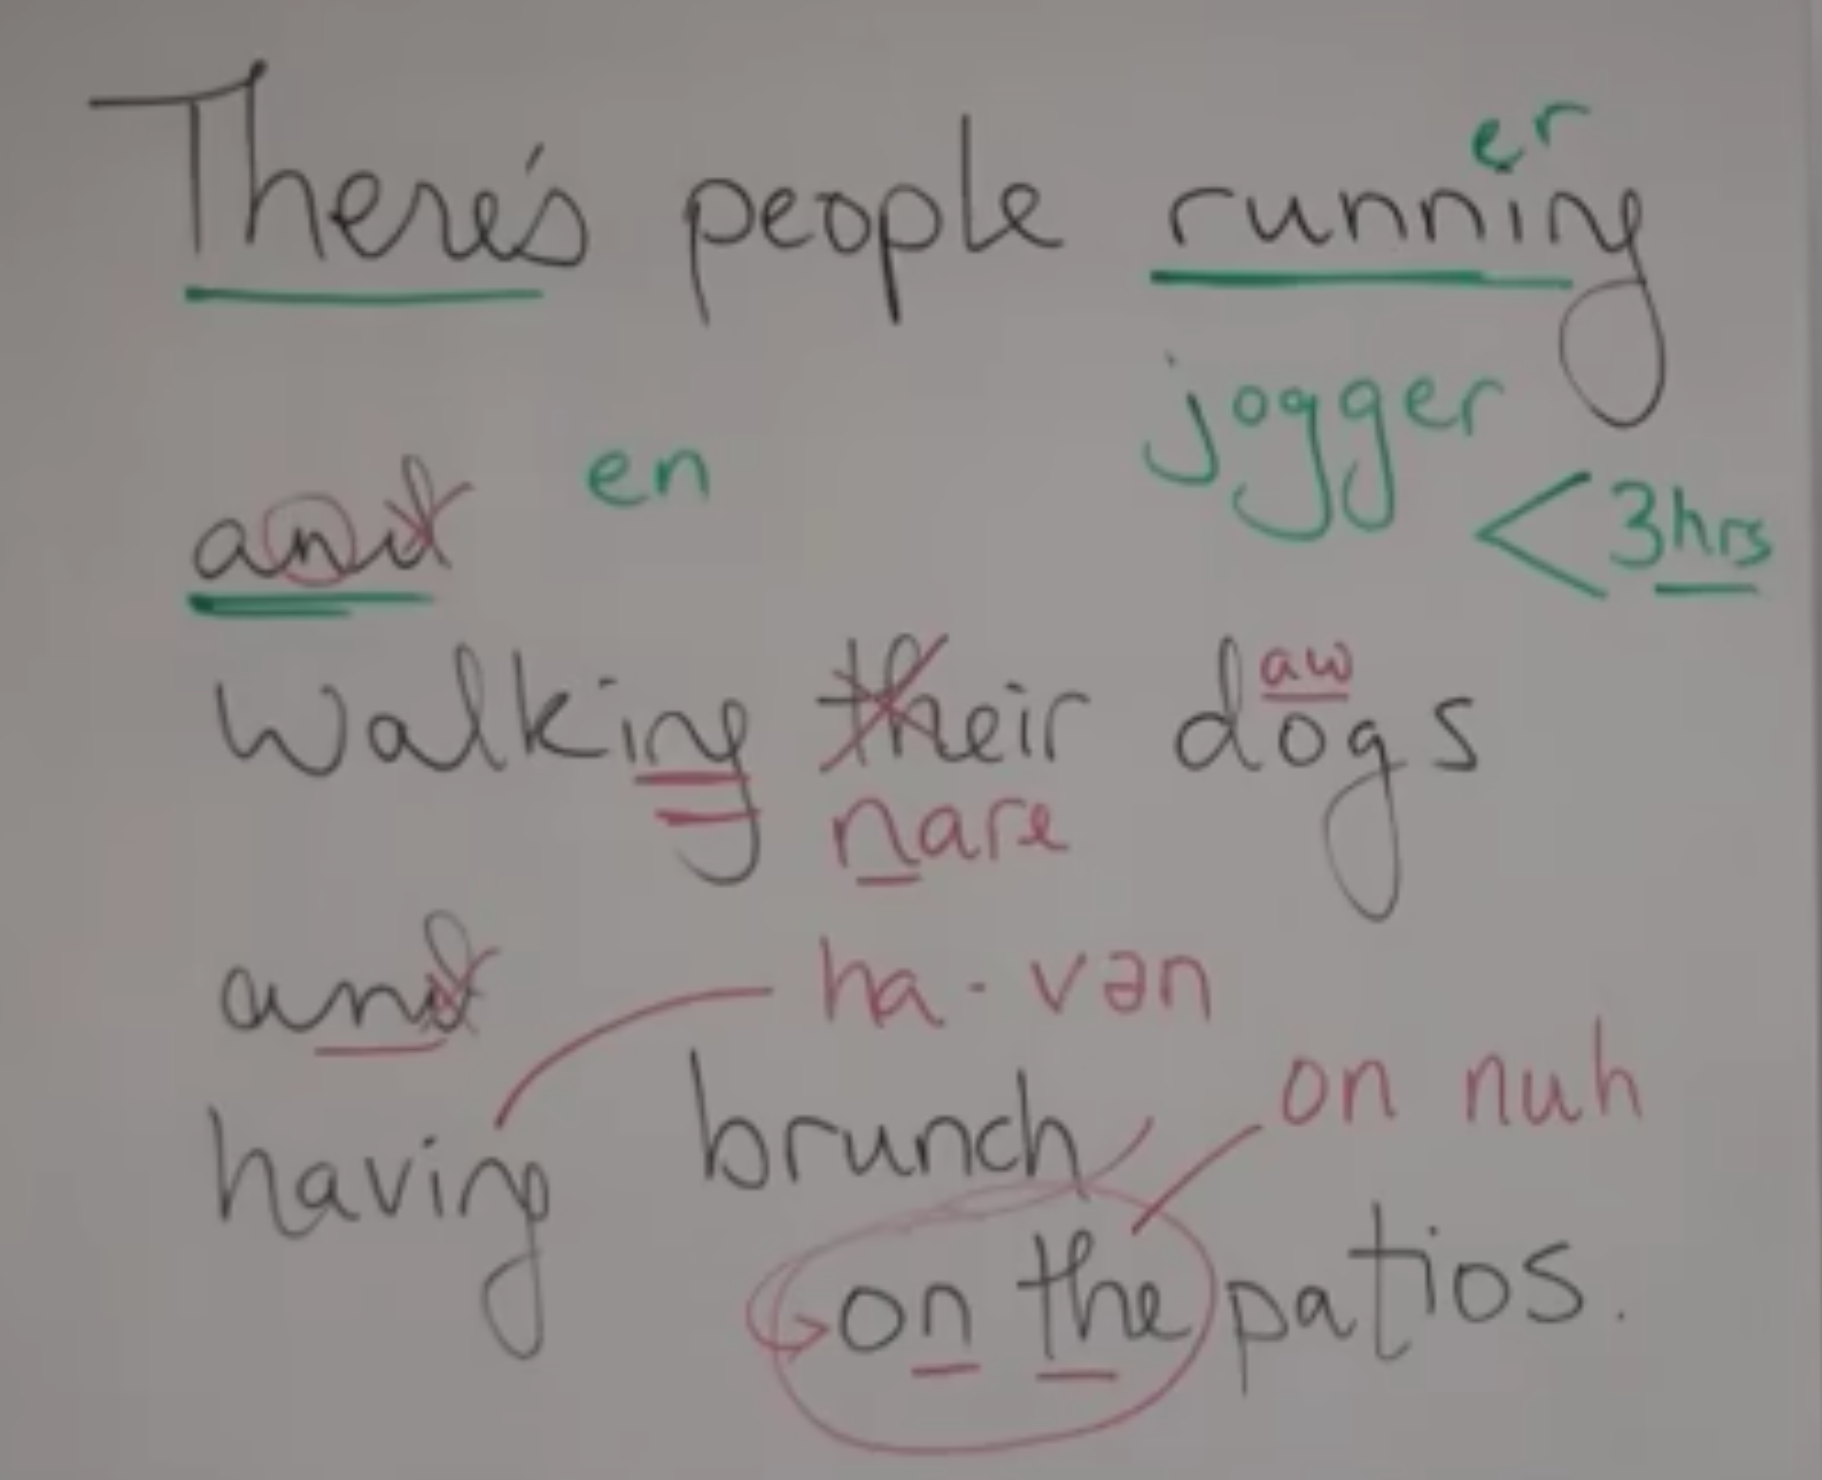 er
There's people running
jogger
and en
< 3hrs
aw
walking their dogs
nare
and ha - vən
on nuh
having brunch
on the patios.